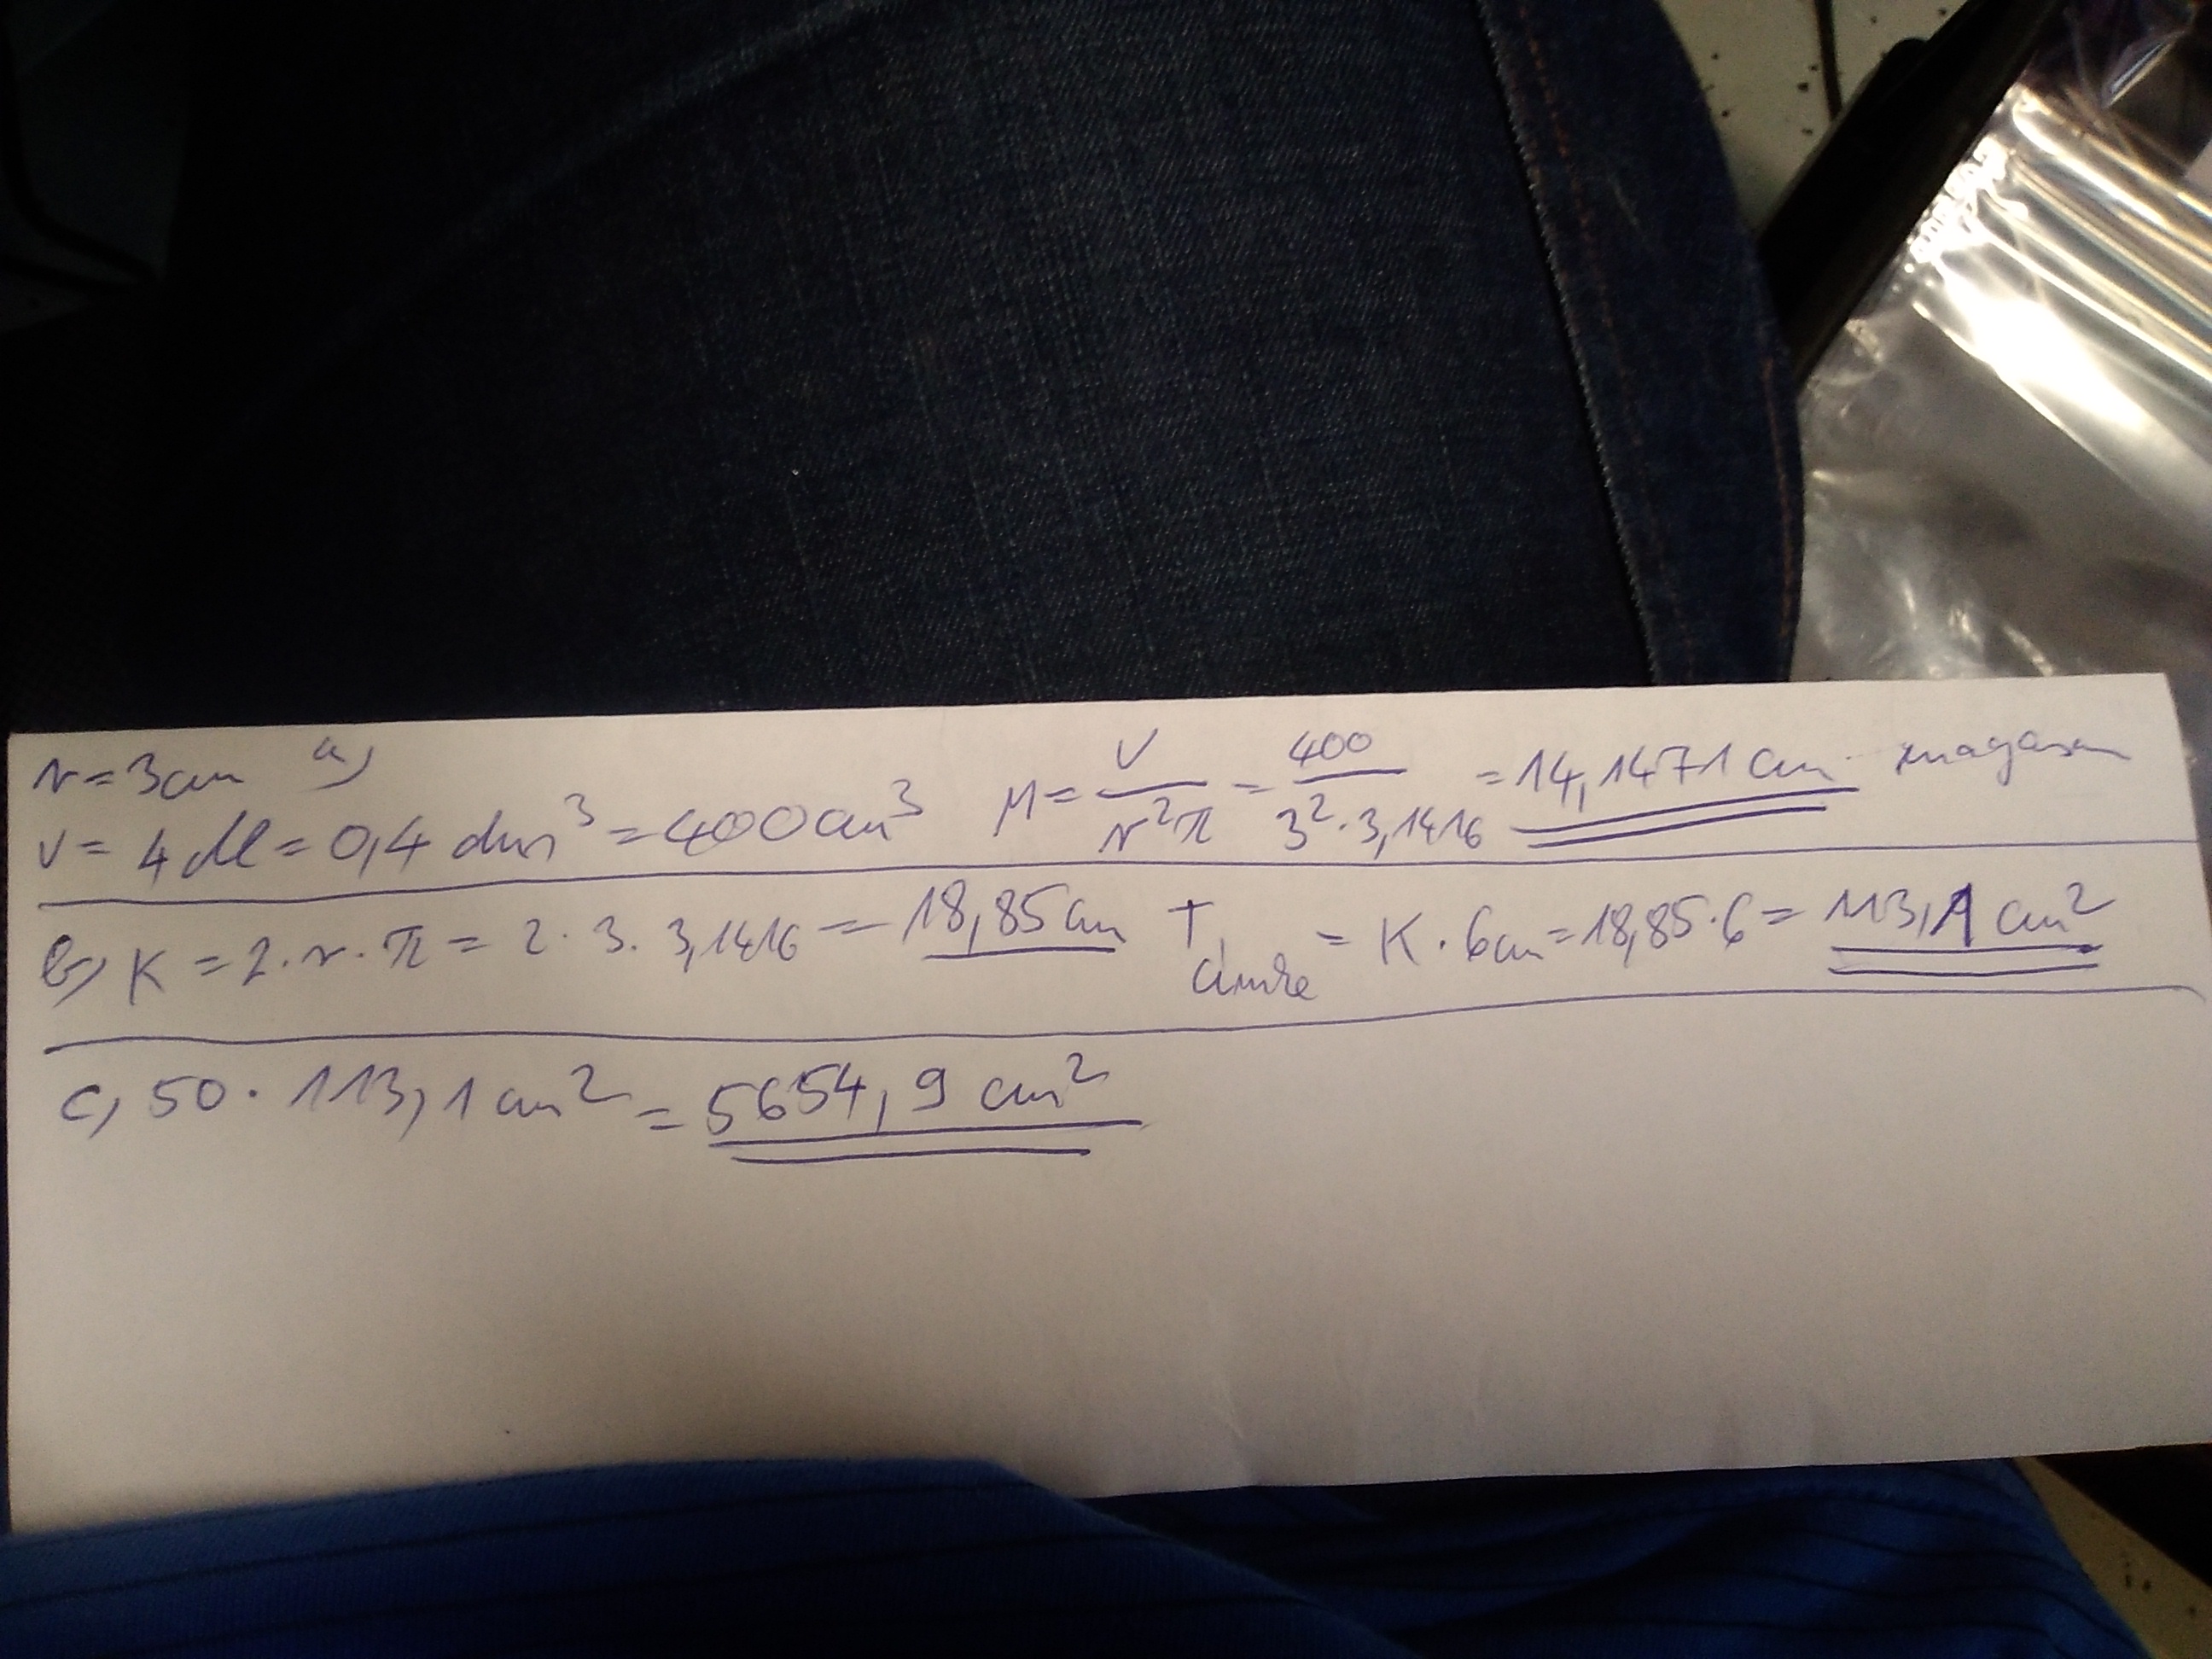 r = 3cm a)
V = 4 dl = 0,4 dm³ = 400 cm³ M = V / r²π = 400 / 3²·3,1416 = 14,1471 cm magasan
b) K = 2·r·π = 2·3·3,1416 = 18,85 cm T címke = K·6cm = 18,85·6 = 113,1 cm²
c, 50·113,1 cm² = 5654,9 cm²